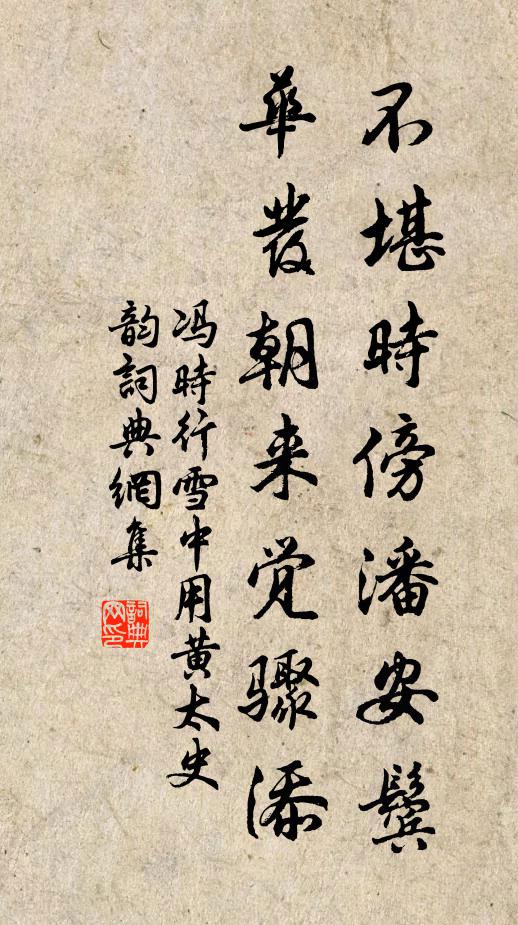 不堪時傍潘安鬓
華發朝来觉驟添
冯時行雪中用黄太史
韵詞典網集
詞典网印